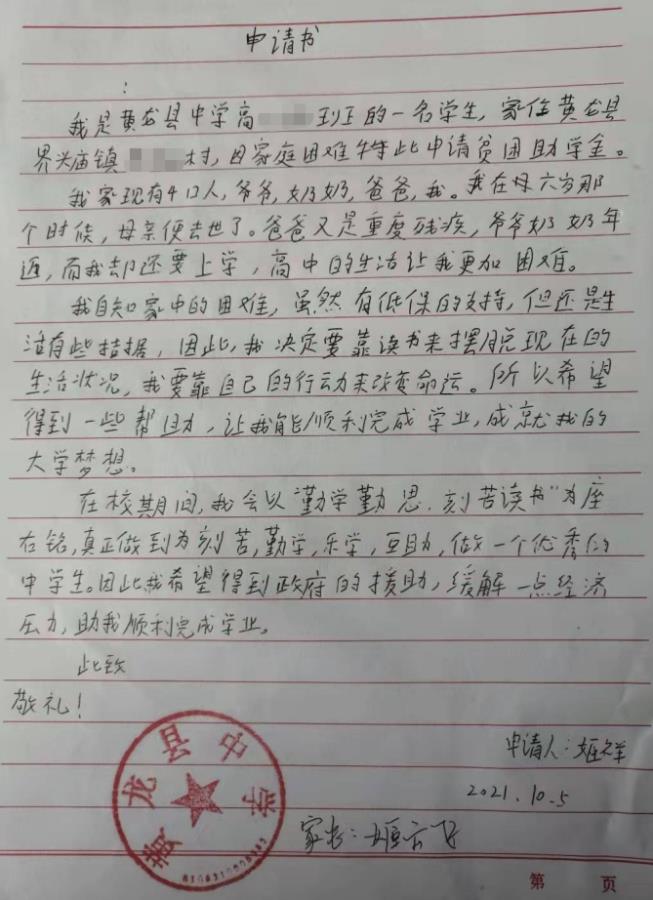 申请书
:
我是黄龙县中学高 到王的一名学生,家住黄龙县
界头庙镇 村,因家庭困难特此申请贫困助学金。
我家现有4口人,爷爷,奶奶,爸爸,我。我在母六岁那
个时候,母亲便去世了。爸爸又是重度残疾,爷爷奶奶年
迈,而我却还要上学,高中的生活让我更加困难。
我自知家中的困难,虽然有低保的支持,但还是生
活有些拮据,因此,我决定要靠读书来摆脱现在的
生活状况,我要靠自己的行动来改变命运。所以希望
得到一些帮助,让我能顺利完成学业,成就我的
大学梦想。
在校期间,我会以“勤学勤思,刻苦读书”为座
右铭,真正做到为刻苦,勤学,乐学,互助,做一个优秀的
中学生。因此我希望得到政府的援助,缓解一点经济
压力,助我顺利完成学业。
此致
敬礼!
申请人:姬祥
2021.10.5
家长:姬云飞
黄龙县中学
第 页